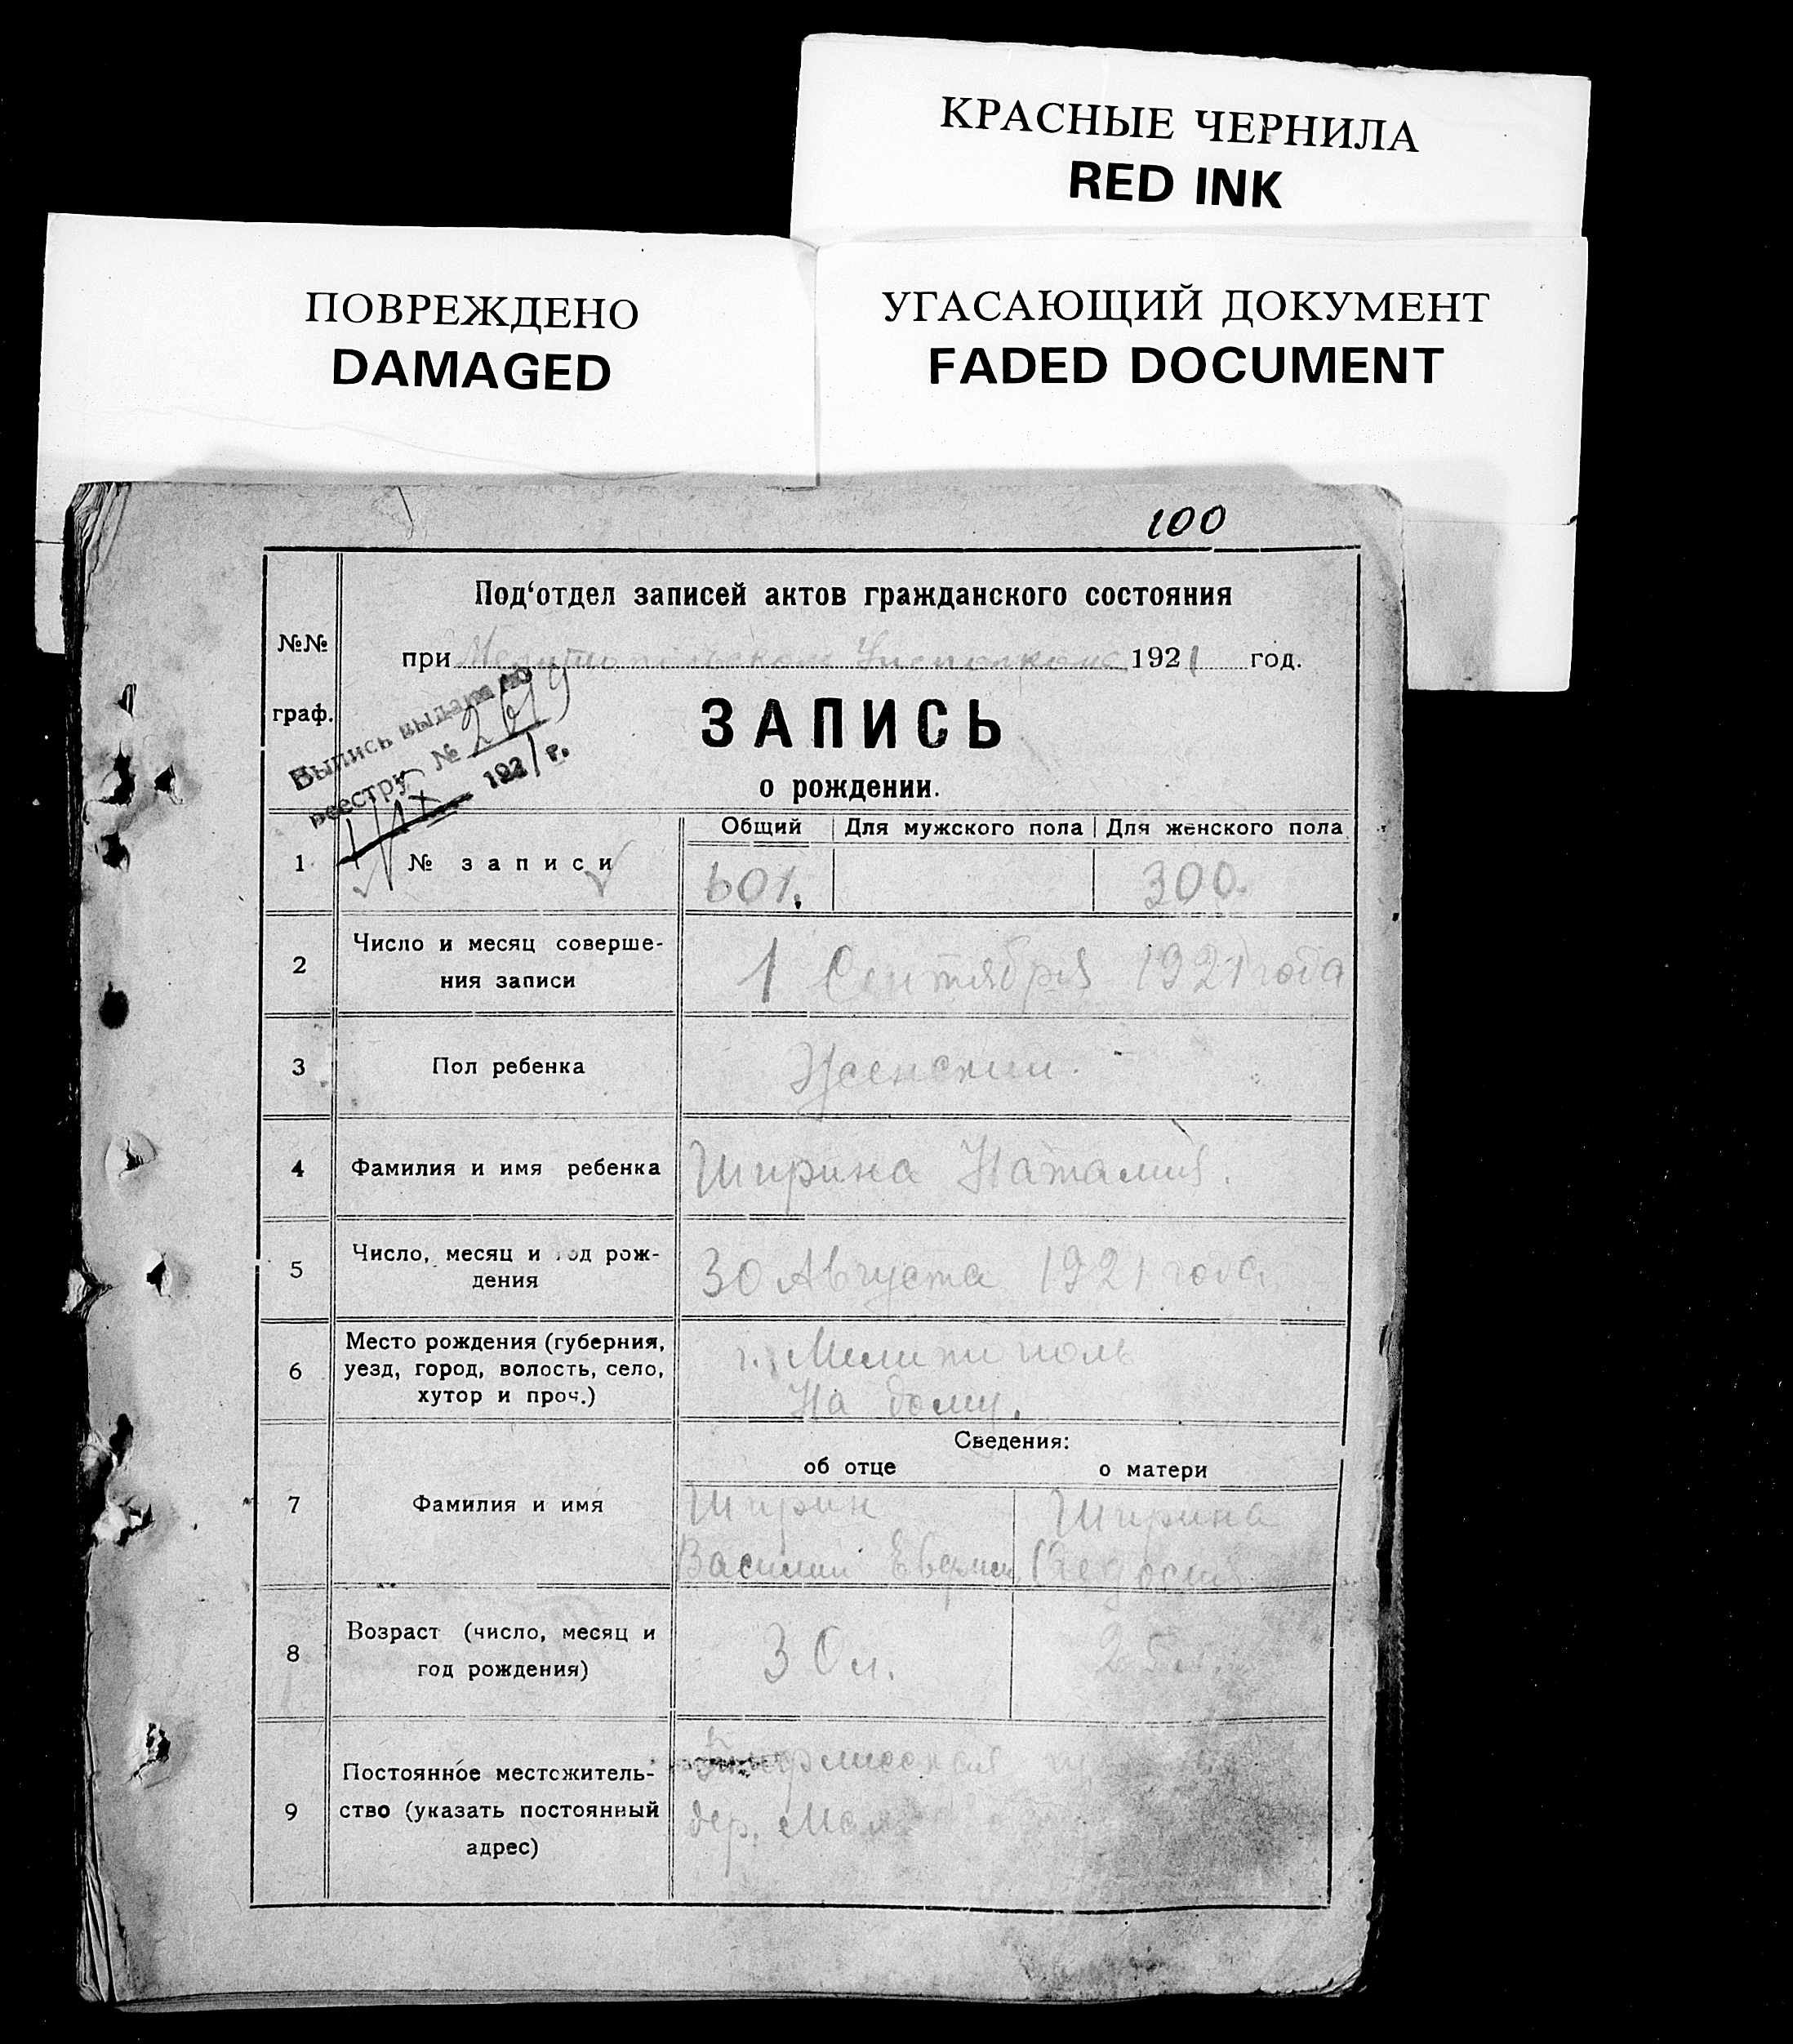 КРАСНЫЕ ЧЕРНИЛА
RED INK
ПОВРЕЖДЕНО
DAMAGED
УГАСАЮЩИЙ ДОКУМЕНТ
FADED DOCUMENT
100
Под‘отдел записей актов гражданского состояния
№№
граф.
при Мелитопольском Исполкоме 1921 год.
Выпись выдана по
реестру № 2619
1/IX 1921 г.
ЗАПИСЬ
о рождении.
Общий Для мужского пола Для женского пола
1 № записи 601. 300.
2 Число и месяц соверше-
ния записи
1 Сентября 1921 года
3 Пол ребенка Женский.
4 Фамилия и имя ребенка Ширина Наталия.
5 Число, месяц и год рож-
дения
30 Августа 1921 года
6 Место рождения (губерния,
уезд, город, волость, село,
хутор и проч.)
г. Мелитополь
На дому.
Сведения:
об отце о матери
7 Фамилия и имя
Ширин Ширина
Василий Федосия
8 Возраст (число, месяц и
год рождения)
30 л. 25 л.
9 Постоянное местожитель-
ство (указать постоянный
адрес)
дер.